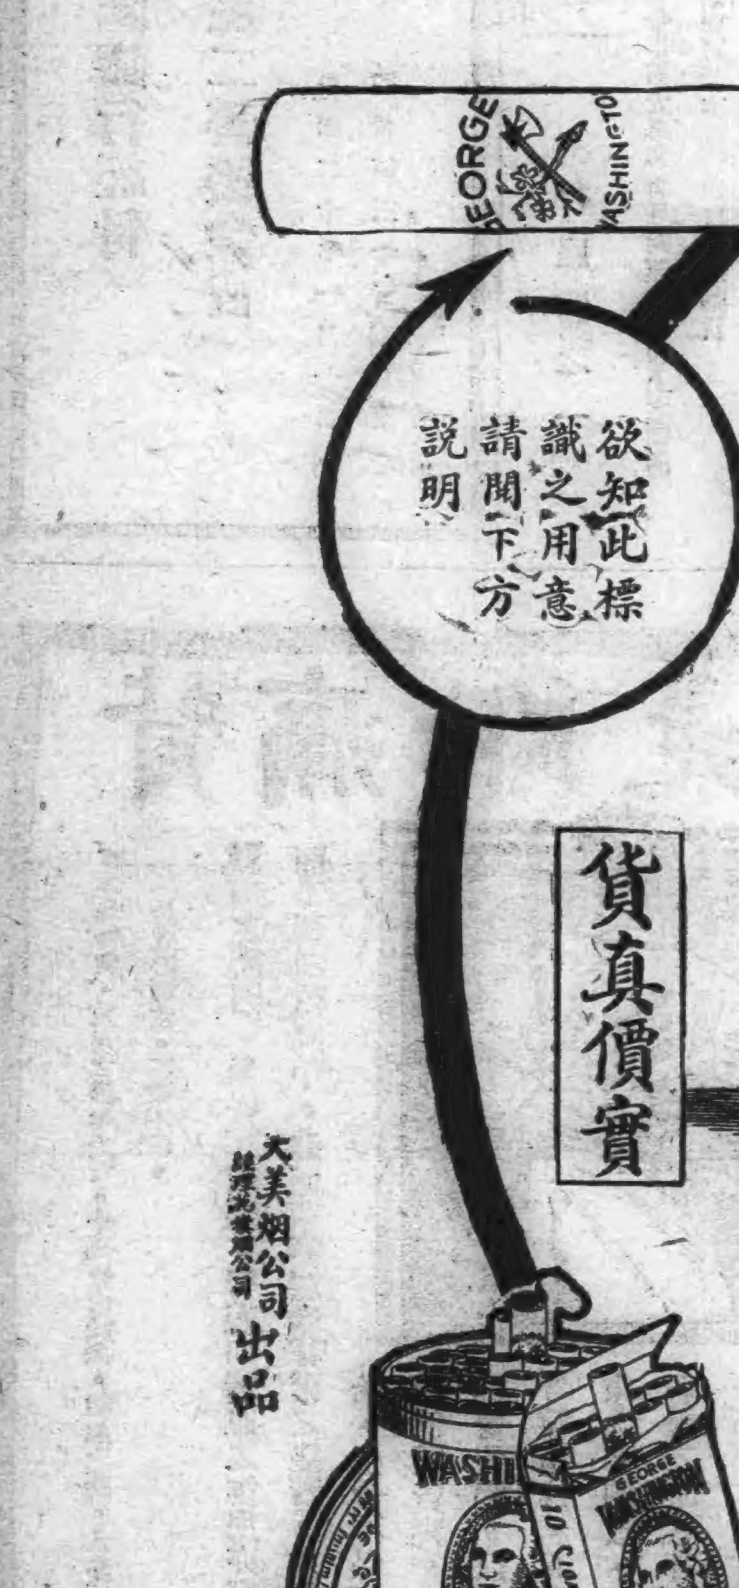 GEORGE
WASHINGTO
欲知此標
識之用意
請閱下方
説明
貨真價實
大美烟公司
公司
出品
WASHI
GEORGE
WASHINGTON
10